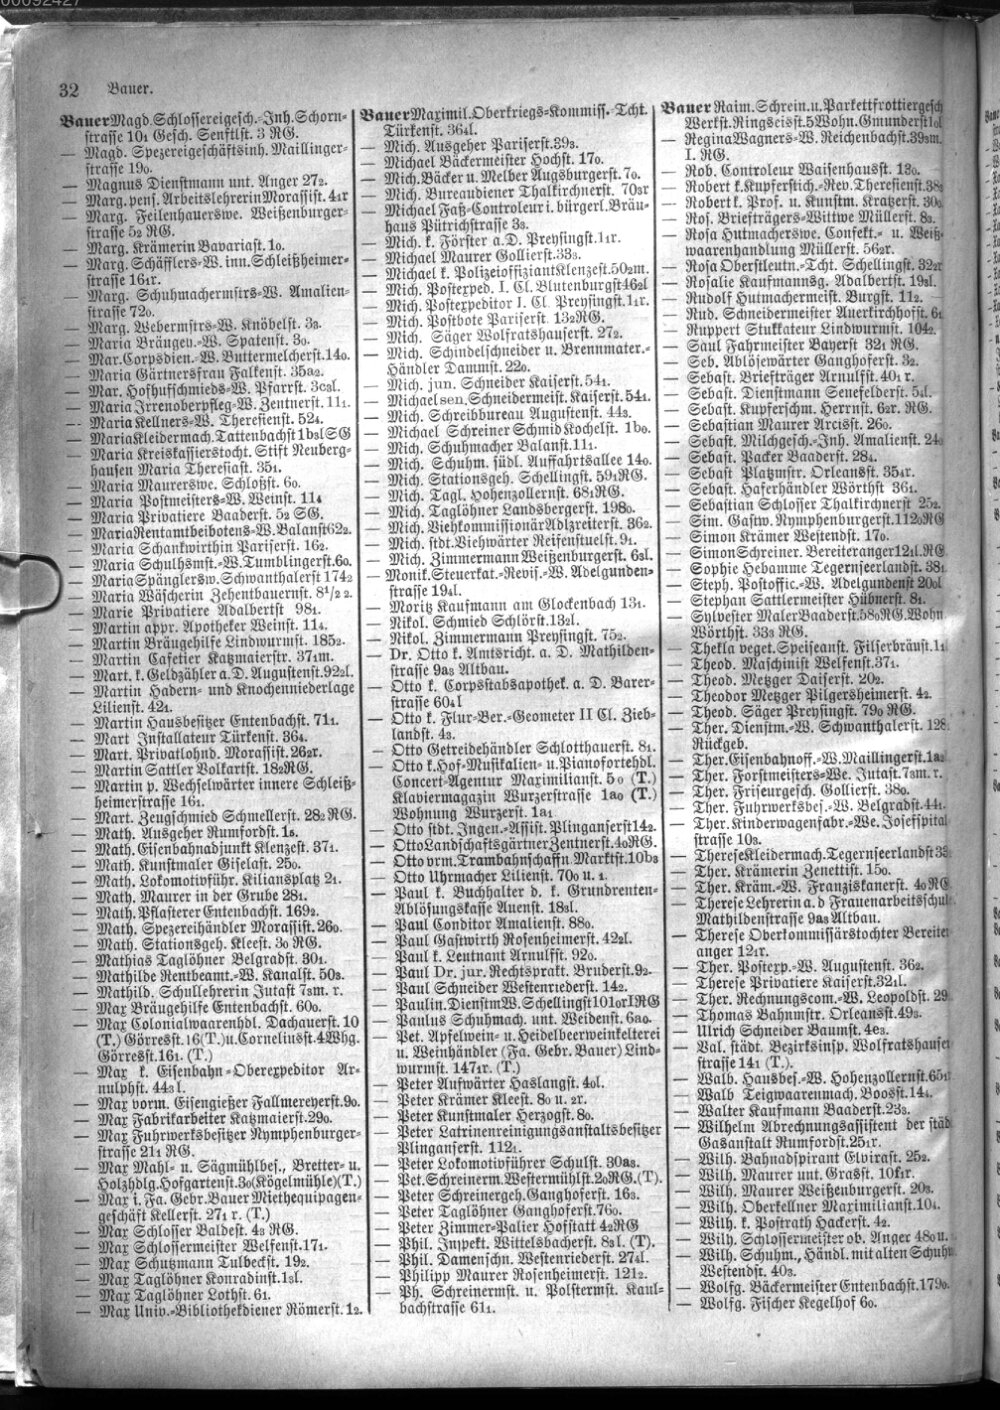 00092427
32 Bauer.
Bauer Magd. Schlossereigesch.-Inh. Schorn-
strasse 101 Gesch. Senftlst. 3 RG.
— Magd. Spezereigeschäftsinh. Maillinger-
strasse 190.
— Magnus Dienstmann unt. Anger 272.
— Marg. pens. Arbeitslehrerin Morassist. 41r
— Marg. Feilenhauerswe. Weißenburger-
strasse 52 RG.
— Marg. Krämerin Bavariast. 10.
— Marg. Schäfflers-W. inn. Schleißheimer-
strasse 161r.
— Marg. Schuhmachermstrs-W. Amalien-
strasse 720.
— Marg. Webermstrs-W. Knöbelst. 33.
— Maria Bräugeh.-W. Spatenst. 30.
— Mar. Corpsdien.-W. Buttermelcherst. 140.
— Maria Gärtnersfrau Falkenst. 35a2.
— Mar. Hofhufschmieds-W. Pfarrst. 3c3l.
— Maria Irrenoberpfleg-W. Zentnerst. 111.
— Maria Kellners-W. Theresienst. 524.
— Maria Kleidermach. Tattenbachst 1b3l SG
— Maria Kreiskassierstocht. Stift Neuberg-
hausen Maria Theresiast. 351.
— Maria Maurerswe. Schloßst. 60.
— Maria Postmeisters-W. Weinst. 114
— Maria Privatiere Baaderst. 52 SG.
— Maria Rentamtbeibotens-W. Balanst 622.
— Maria Schankwirthin Pariserst. 162.
— Maria Schulhsmst.-W. Tumblingerst. 60.
— Maria Spänglersw. Schwanthalerst 1742
— Maria Wäscherin Zehentbauernst. 8½ 2.
— Marie Privatiere Adalbertst 981.
— Martin appr. Apotheker Weinst. 114.
— Martin Bräugehilfe Lindwurmst. 1852.
— Martin Cafetier Katzmaierstr. 371m.
— Mart. k. Geldzähler a.D. Augustenst. 922l.
— Martin Hadern- und Knochenniederlage
Lilienst. 421.
— Martin Hausbesitzer Entenbachst. 711.
— Mart Installateur Türkenst. 364.
— Mart. Privatlohnd. Morassist. 262r.
— Martin Sattler Volkartst. 182RG.
— Martin p. Wechselwärter innere Schleiß-
heimerstrasse 161.
— Mart. Zeugschmied Schmellerst. 282 RG.
— Math. Ausgeher Rumfordst. 15.
— Math. Eisenbahnadjunkt Klenzest. 371.
— Math. Kunstmaler Giselast. 250.
— Math. Lokomotivführ. Kiliansplatz 21.
— Math. Maurer in der Grube 281.
— Math. Pflasterer Entenbachst. 1692.
— Math. Spezereihändler Morassist. 260.
— Math. Stationsgeh. Kleest. 30 RG.
— Mathias Taglöhner Belgradst. 301.
— Mathilde Rentbeamt.-W. Kanalst. 503.
— Mathild. Schullehrerin Jutast 73m. r.
— Max Bräugehilfe Entenbachst. 600.
— Max Colonialwaarenhdl. Dachauerst. 10
(T.) Görresst. 16 (T.) u. Corneliusst. 4 Whg.
Görresst. 161. (T.)
— Max k. Eisenbahn-Oberexpeditor Ar-
nulphst. 443l.
— Max vorm. Eisengießer Fallmereyerst. 90.
— Max Fabrikarbeiter Katzmaierst. 290.
— Max Fuhrwerksbesitzer Nymphenburger-
strasse 211 RG.
— Max Mahl- u. Sägmühlbes., Bretter- u.
Holzhdlg. Hofgartenst. 30 (Kögelmühle) (T.)
— Max i. Fa. Gebr. Bauer Miethequipagen-
geschäft Kellerst. 271 r. (T.)
— Max Schlosser Baldest. 43 RG.
— Max Schlossermeister Welfenst. 171.
— Max Schutzmann Tulbeckst. 192.
— Max Taglöhner Konradinst. 13l.
— Max Taglöhner Lothst. 61.
— Max Univ.-Bibliothekdiener Römerst. 12.
Bauer Maximil. Oberkriegs-Kommiss.-Tcht.
Türkenst. 364l.
— Mich. Ausgeher Pariserst. 393.
— Michael Bäckermeister Hochst. 170.
— Mich. Bäcker u. Melber Augsburgerst. 70.
— Mich. Bureaudiener Thalkirchnerst. 703r
— Michael Faß-Controleur i. bürgerl. Bräu-
haus Pütrichstrasse 33.
— Mich. k. Förster a. D. Preysingst. 11r.
— Michael Maurer Gollierst. 333.
— Michael k. Polizeioffiziant Klenzest. 502m.
— Mich. Postexped. I. Cl. Blutenburgst 462l
— Mich. Postexpeditor I. Cl. Preysingst. 11r.
— Mich. Postbote Pariserst. 132RG.
— Mich. Säger Wolfratshauserst. 272.
— Mich. Schindelschneider u. Brennmater.-
Händler Dammst. 220.
— Mich. jun. Schneider Kaiserst. 541.
— Michael sen. Schneidermeist. Kaiserst. 541.
— Mich. Schreibbureau Augustenst. 443.
— Michael Schreiner Schmid Kochelst. 1b0.
— Mich. Schuhmacher Balanst. 111.
— Mich. Schuhm. südl. Auffahrtsallee 140.
— Mich. Stationsgeh. Schellingst. 591RG.
— Mich. Tagl. Hohenzollernst. 681RG.
— Mich. Taglöhner Landsbergerst. 1980.
— Mich. Viehkommissionär Adlzreiterst. 362.
— Mich. stdt. Viehwärter Reisenstuelst. 91.
— Mich. Zimmermann Weißenburgerst. 63l.
— Monik. Steuerkat.-Revis.-W. Adelgunden-
strasse 194l.
— Moritz Kaufmann am Glockenbach 131.
— Nikol. Schmied Schlörst. 132l.
— Nikol. Zimmermann Preysingst. 752.
— Dr. Otto k. Amtsricht. a. D. Mathilden-
strasse 9a3 Altbau.
— Otto k. Corpsstabsapothek. a. D. Barer-
strasse 604l
— Otto k. Flur-Ber.-Geometer II Cl. Zieb-
landst. 43.
— Otto Getreidehändler Schlotthauerst. 81.
— Otto k. Hof-Musikalien- u. Pianofortehdl.
Concert-Agentur Maximilianst. 50 (T.)
Klaviermagazin Wurzerstrasse 1a0 (T.)
Wohnung Wurzerst. 1a1
— Otto stdt. Ingen.-Assist. Plinganserst 142.
— Otto Landschaftsgärtner Zentnerst. 40RG.
— Otto vrm. Trambahnschaffn. Marktst. 10b3
— Otto Uhrmacher Lilienst. 700 u. 1.
— Paul k. Buchhalter d. k. Grundrenten-
Ablösungskasse Auenst. 183l.
— Paul Conditor Amalienst. 880.
— Paul Gastwirth Rosenheimerst. 422l.
— Paul k. Leutnant Arnulfst. 920.
— Paul Dr. jur. Rechtsprakt. Bruderst. 92-
— Paul Schneider Westenriederst. 142.
— Paulin. Dienstm W. Schellingst 1010rI RG
— Paulus Schuhmach. unt. Weidenst. 6a0.
— Pet. Apfelwein- u. Heidelbeerweinkelterei
u. Weinhändler (Fa. Gebr. Bauer) Lind-
wurmst. 1471r. (T.)
— Peter Aufwärter Haslangst. 40l.
— Peter Krämer Kleest. 80 u. 2r.
— Peter Kunstmaler Herzogst. 80.
— Peter Latrinenreinigungsanstaltsbesitzer
Plinganserst. 1121.
— Peter Lokomotivführer Schulst. 30a3.
— Pet. Schreinerm. Westermühlst. 20RG. (T).
— Peter Schreinergeh. Ganghoferst. 163.
— Peter Taglöhner Ganghoferst. 760.
— Peter Zimmer-Palier Hofstatt 42RG
— Phil. Inspekt. Wittelsbacherst. 83l. (T).
— Phil. Damenschn. Westenriederst. 274l.
— Philipp Maurer Rosenheimerst. 1212.
— Ph. Schreinermst. u. Polstermst. Kaul-
bachstrasse 611.
Bauer Raim. Schrein. u. Parkettfrottiergesch
Werkst. Ringseisst. 5 Wohn. Gmunderst 10l
— Regina Wagners-W. Reichenbachst. 393m.
I. RG.
— Rob. Controleur Waisenhausst. 130.
— Robert k. Kupferstich.-Rev. Theresienst. 383
— Robert k. Prof. u. Kunstm. Kratzerst. 300
— Ros. Briefträgers-Wittwe Müllerst. 83.
— Rosa Hutmacherswe. Confekt.- u. Weiß-
waarenhandlung Müllerst. 562r.
— Rosa Oberstleutn.-Tcht. Schellingst. 322r
— Rosalie Kaufmannsg. Adalbertst. 193l.
— Rudolf Hutmachermeist. Burgst. 112.
— Rud. Schneidermeister Auerkirchhofst. 61
— Ruppert Stukkateur Lindwurmst. 1042.
— Saul Fahrmeister Bayerst 321 RG.
— Seb. Ablösewärter Ganghoferst. 32.
— Sebast. Briefträger Arnulfst. 401 r.
— Sebast. Dienstmann Senefelderst. 54l.
— Sebast. Kupferschm. Herrnst. 62r. RG.
— Sebastian Maurer Arcisst. 260.
— Sebast. Milchgesch.-Inh. Amalienst. 24
— Sebast. Packer Baaderst. 284.
— Sebast Platzmstr. Orleansst. 354r.
— Sebast. Haferhändler Wörthst 361.
— Sebastian Schlosser Thalkirchnerst 252.
— Sim. Gastw. Nymphenburgerst. 1120RG
— Simon Krämer Westendst. 170.
— Simon Schreiner. Bereiteranger 121l. RG
— Sophie Hebamme Tegernseerlandst. 381
— Steph. Postoffic.-W. Adelgundenst 200l
— Stephan Sattlermeister Hübnerst. 81.
— Sylvester Maler Baaderst. 580RG. Wohn
Wörthst. 333 RG.
— Thekla veget. Speiseanst. Filserbräust. 11
— Theod. Maschinist Welfenst. 371.
— Theod. Metzger Daiserst. 202.
— Theodor Metzger Pilgersheimerst. 42.
— Theod. Säger Preysingst. 790 RG.
— Ther. Dienstm.-W. Schwanthalerst. 128
Rückgeb.
— Ther. Eisenbahnoff.-W. Maillingerst. 1a2
— Ther. Forstmeisters-We. Jutast. 73m. r.
— Ther. Friseurgesch. Gollierst. 380.
— Ther. Fuhrwerksbes.-W. Belgradst. 441.
— Ther. Kinderwagenfabr.-We. Josefspital
strasse 103.
— Therese Kleidermach. Tegernseerlandst 3
— Ther. Krämerin Zenettist. 150.
— Ther. Kräm.-W. Franziskanerst. 40RG
— Therese Lehrerin a. d Frauenarbeitsschule
Mathildenstrasse 9a3 Altbau.
— Therese Oberkommissärstochter Bereiter
anger 121r.
— Ther. Postexp.-W. Augustenst. 362.
— Therese Privatiere Kaiserst. 321l.
— Ther. Rechnungscom.-W. Leopoldst. 29
— Thomas Bahnmstr. Orleansst. 493.
— Ulrich Schneider Baumst. 4e3.
— Val. städt. Bezirksinsp. Wolfratshauser
strasse 141 (T.).
— Walb. Hausbes.-W. Hohenzollernst. 651
— Walb Teigwaarenmach. Boosst. 144.
— Walter Kaufmann Baaderst. 233.
— Wilhelm Abrechnungsassistent der städ
Gasanstalt Rumfordst. 251r.
— Wilh. Bahnadspirant Elvirast. 252.
— Wilh. Maurer unt. Grasst. 10f1r.
— Wilh. Maurer Weißenburgerst. 203.
— Wilh. Oberkellner Maximilianst. 104.
— Wilh. k. Postrath Hackerst. 42.
— Wilh. Schlossermeister ob. Anger 480 u.
— Wilh. Schuhm., Händl. mit alten Schuhn
Westendst. 403.
— Wolfg. Bäckermeister Entenbachst. 1790
— Wolfg. Fischer Kegelhof 60.